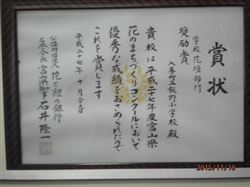 賞状
学校花壇部門
奨励賞
入善町立飯野小学校 殿
貴校は平成二十七年度富山県
花のまちづくりコンクールにおいて
優秀な成績をおさめられたので
これを賞します
平成二十七年十月吉日
公益財団法人 花と緑の銀行
石井隆一
2015/11/10